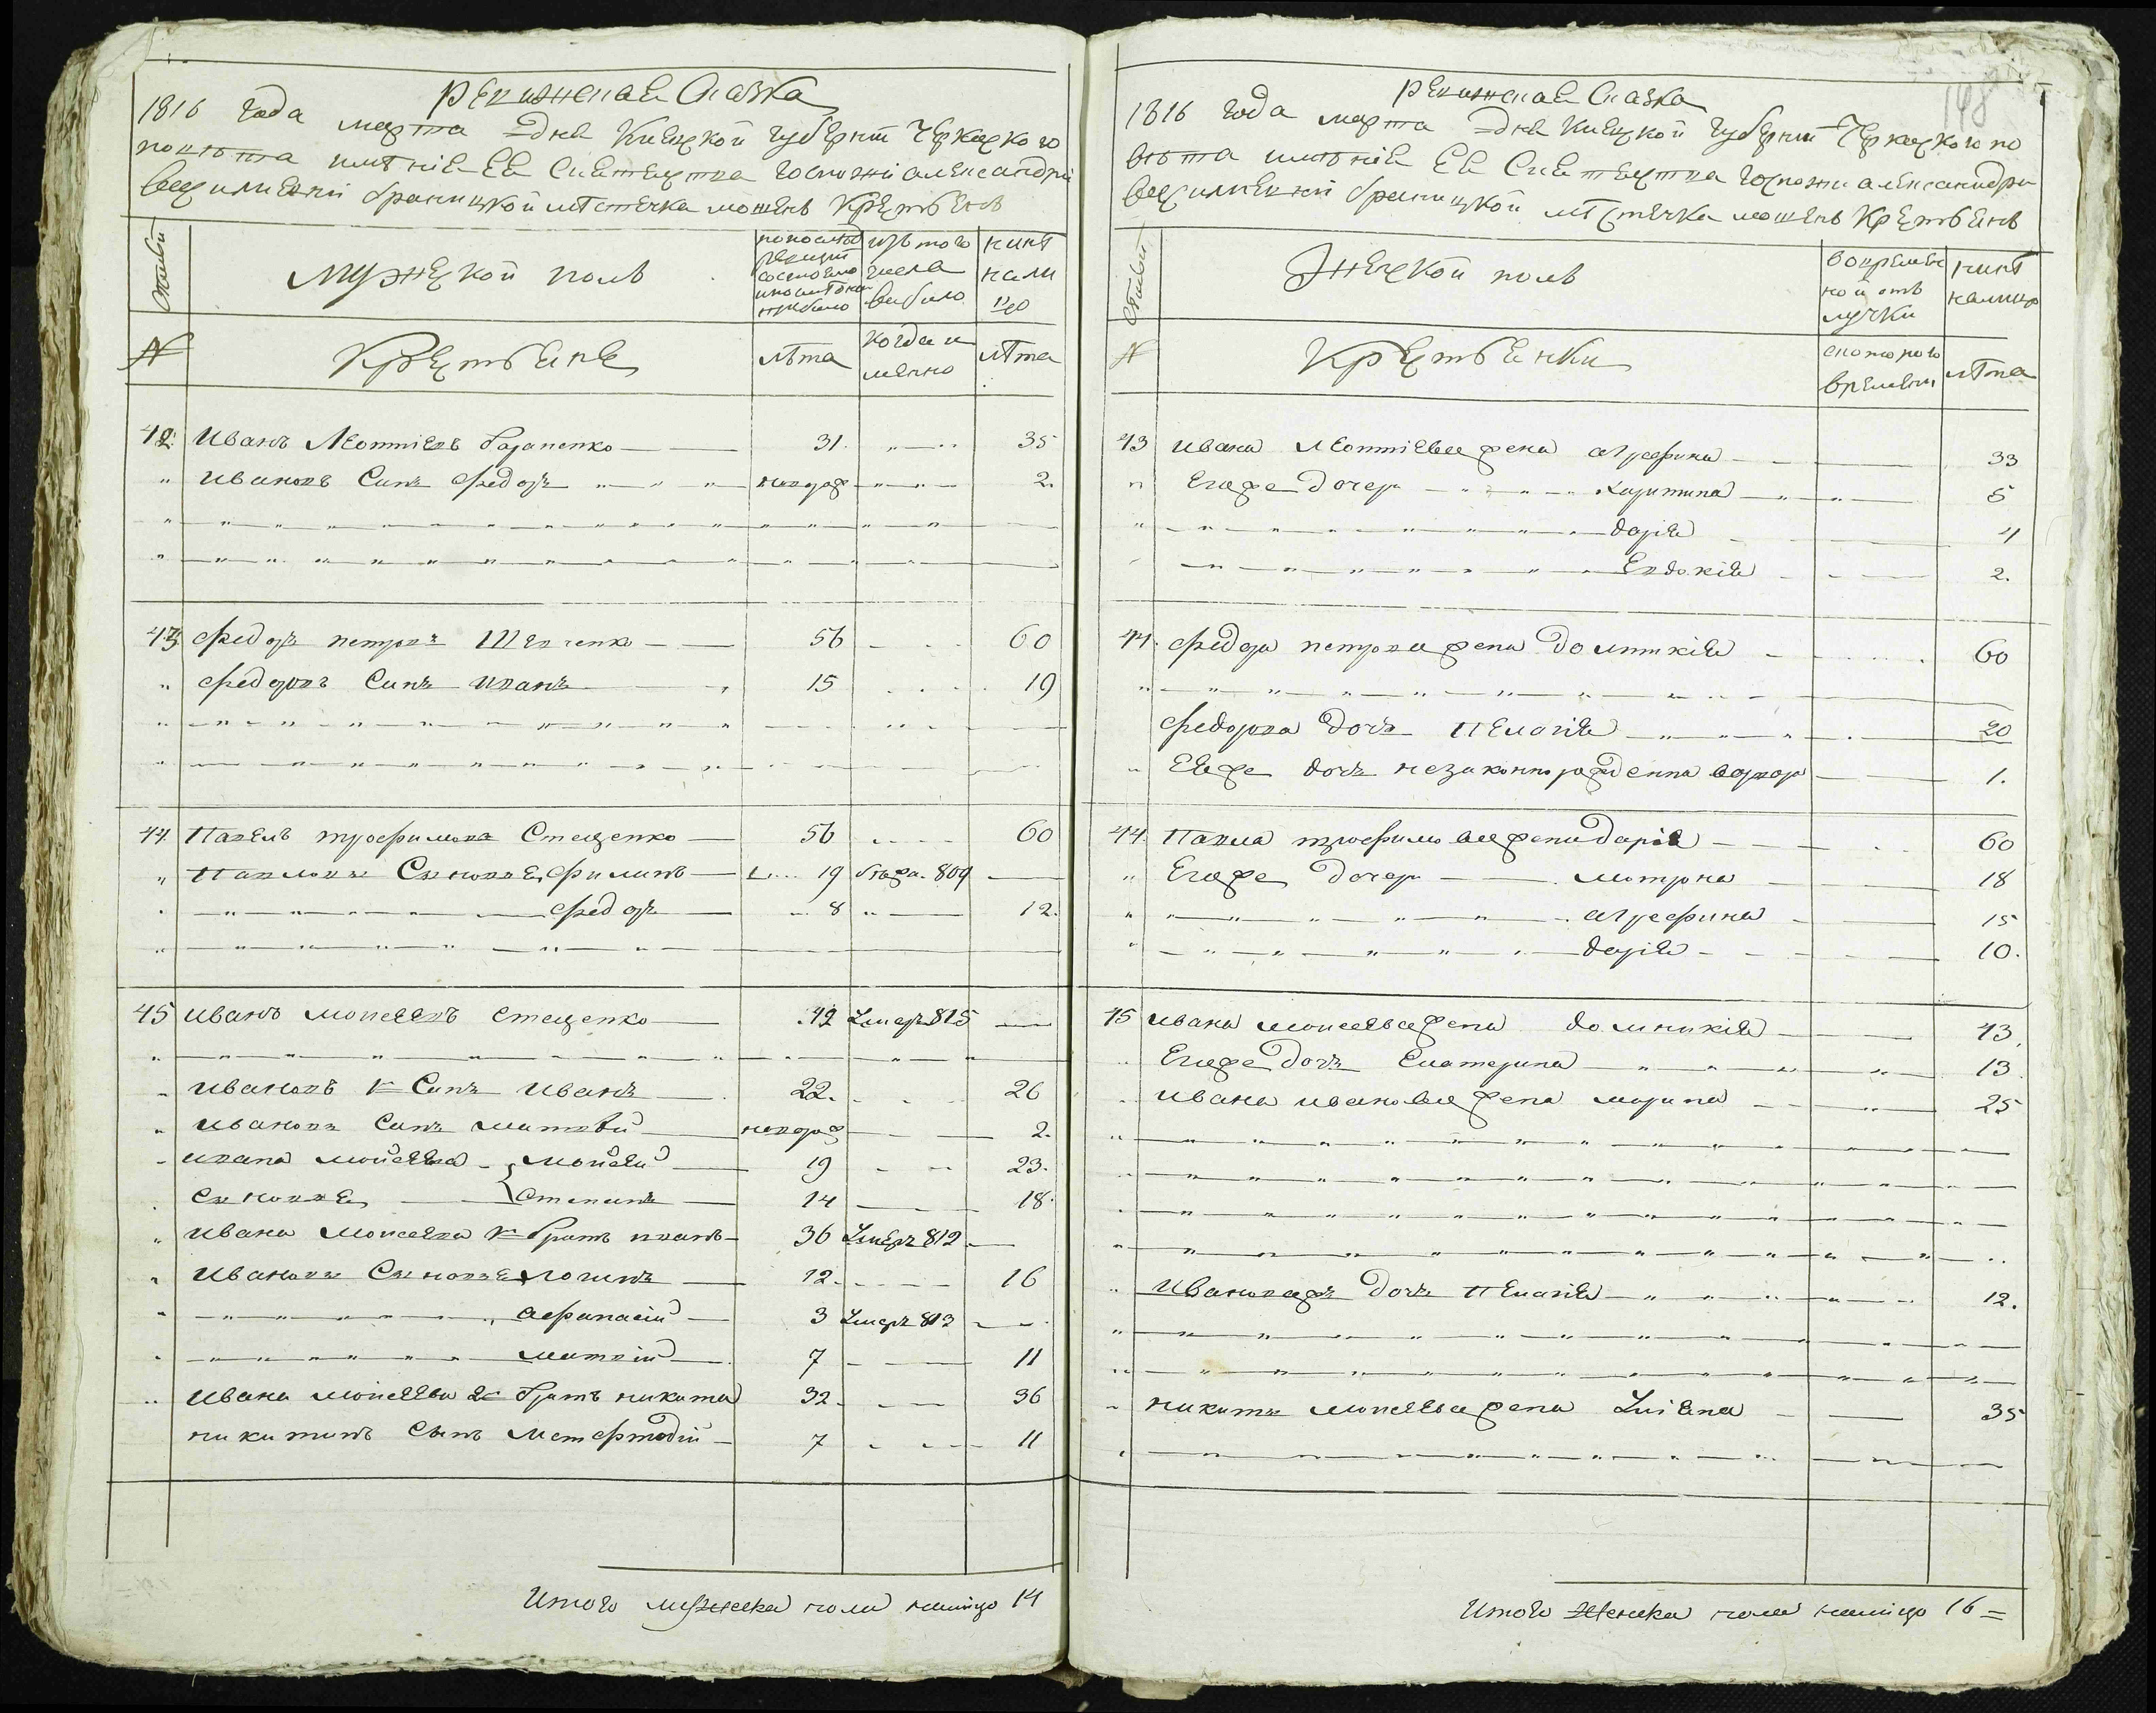 ревижская Сказка
1816 года марта дня Киевской губернии Черкаского
повѣта имѣние Ея Сиятельства госпожи александры
васильевны браницкой мѣстечка мошенъ Крестьянъ
Семьи
мужеской полъ
по последней ревизии состояло и после тово прибыло
изъ того числа выбило
ныне налицо
№
Крестьяне
лѣта
когда именно
лѣта
42 Иванъ Леонтиевъ Тарапенко 31 35
Ивановъ Синъ Федоръ новорож 2
43 Федоръ петровъ Шевченко 56 60
Федоровъ Синъ иванъ 15 19
44 Павелъ трофимовъ Стеценко 56 60
Павловы Сыновья Филипъ 19 бѣжа. 809
Федоръ 8 12
45 Иванъ моисеевъ Стеценко 42 Умеръ 815
Ивановъ 1й Синъ Иванъ 22 26
Ивановъ Синъ матвѣй новорож 2
ивана мойсеева мойсей 19 23
Сыновья Степанъ 14 18
Ивана моисеева 1й братъ иванъ 36 Умеръ 812
Ивановы Сыновья логинъ 12 16
афанасий 3 Умеръ 813
матвий 7 11
Ивана мойсеева 2й братъ никита 32 36
никитинъ Сынъ 7 11
Итого мужеска пола налицо 14
148
ревижская Сказка
1816 года марта дня Киевской губернии Черкаского по
вѣта имѣние Ея Сиятельства госпожи александры
васильевны браницкой мѣстечка мошенъ Крестьянъ
Семьи
Женской полъ
во временной отлучки
ныне налицо
№
Крестьянки
с которого времени
лѣта
43 ивана Леонтиева жена агрефина 33
Егоже дочери харитина 5
дария 4
Евдокия 2
44 Федора петрова жена Домникия 60
Федорова дочь Пелагия 20
Еяже дочь незаконнорожденна варвара 1
44 Павла трофимова жена Дария 60
Егоже дочери мотрона 18
агрефина 15
дария 10
45 ивана моисеева жена домникия 43
Егоже дочь Екатерина 13
ивана иванова жена марина 25
Ивановажъ дочь Пелагия 12
никиты моисеева жена Улияна 35
Итого Женска пола налицо 16